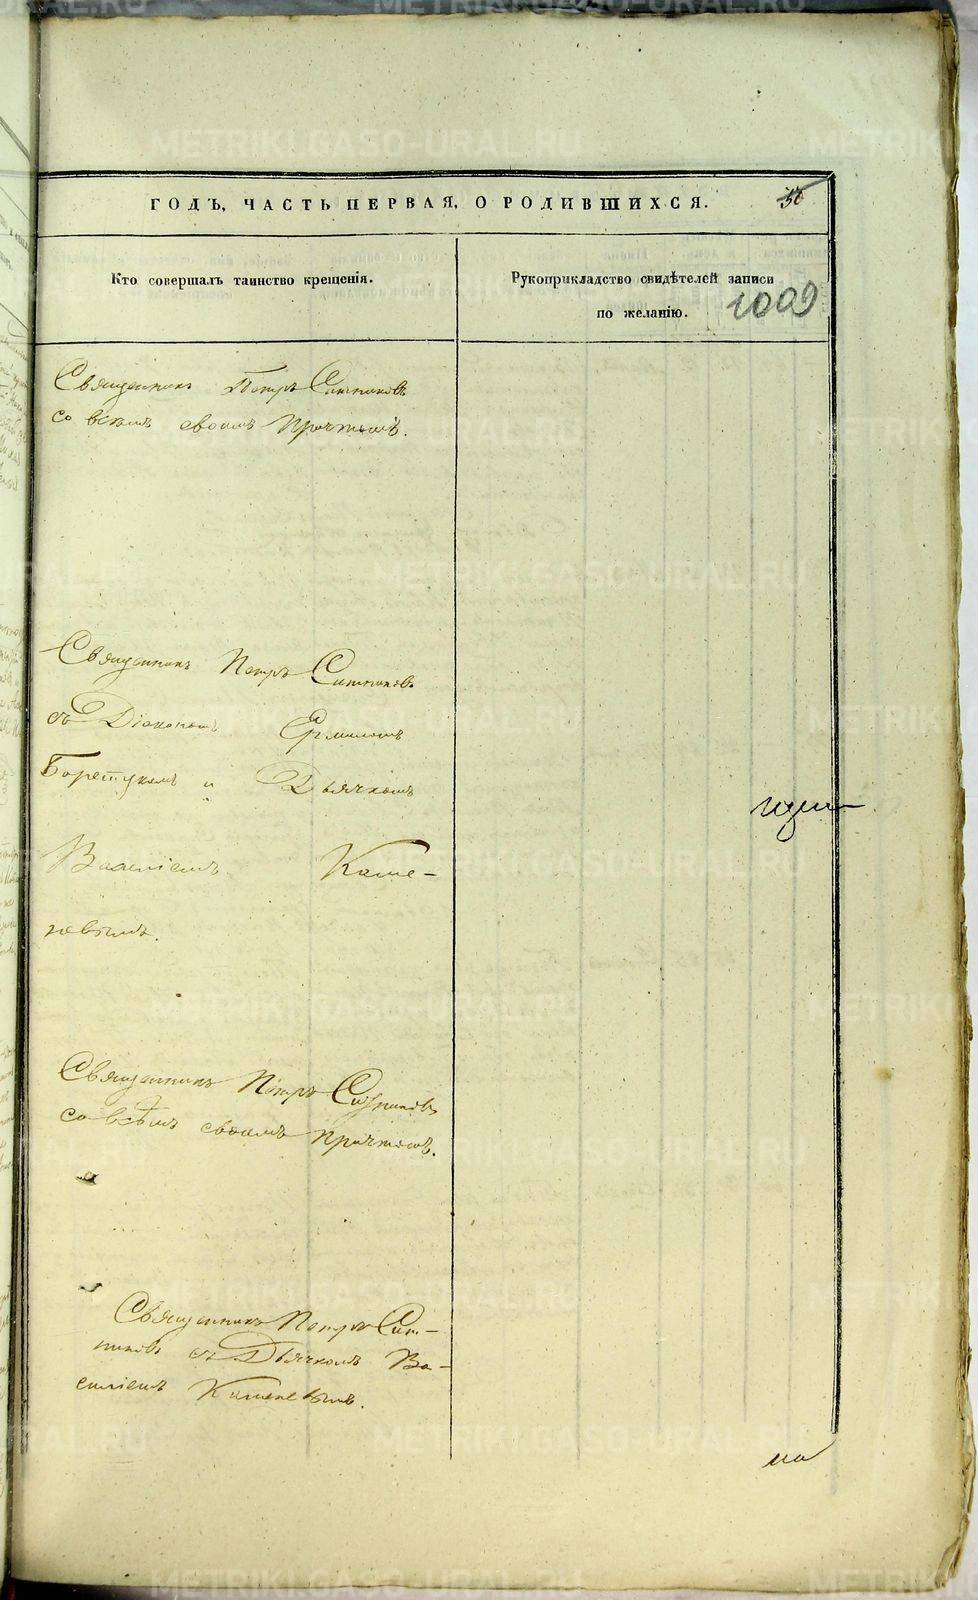 ГОДЪ, ЧАСТЬ ПЕРВАЯ, О РОДИВШИХСЯ.
Кто совершалъ таинство крещенія.
Рукоприкладство свидѣтелей записи
по желанію.
1009
Священникъ Петръ Ситниковъ
со всѣмъ своимъ причтомъ.
Священникъ Петръ Ситниковъ
съ Діакономъ Ермиломъ
и Дьячкомъ
Василіемъ Каме-
невымъ.
Священникъ Петръ Ситниковъ
со всѣмъ своимъ причтомъ.
Священникъ Петръ Сит-
никовъ съ Дьячкомъ Ва-
силіемъ Каменевымъ.
METRIKI.GASO-URAL.RU